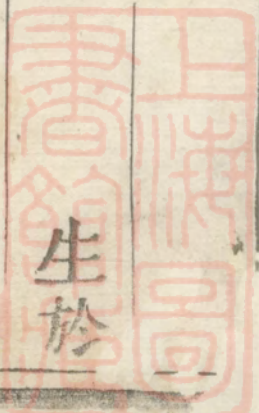 生於
上海圖
書館藏